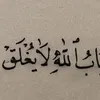 بَابُ اللهِ لَا يُغْلَقُ